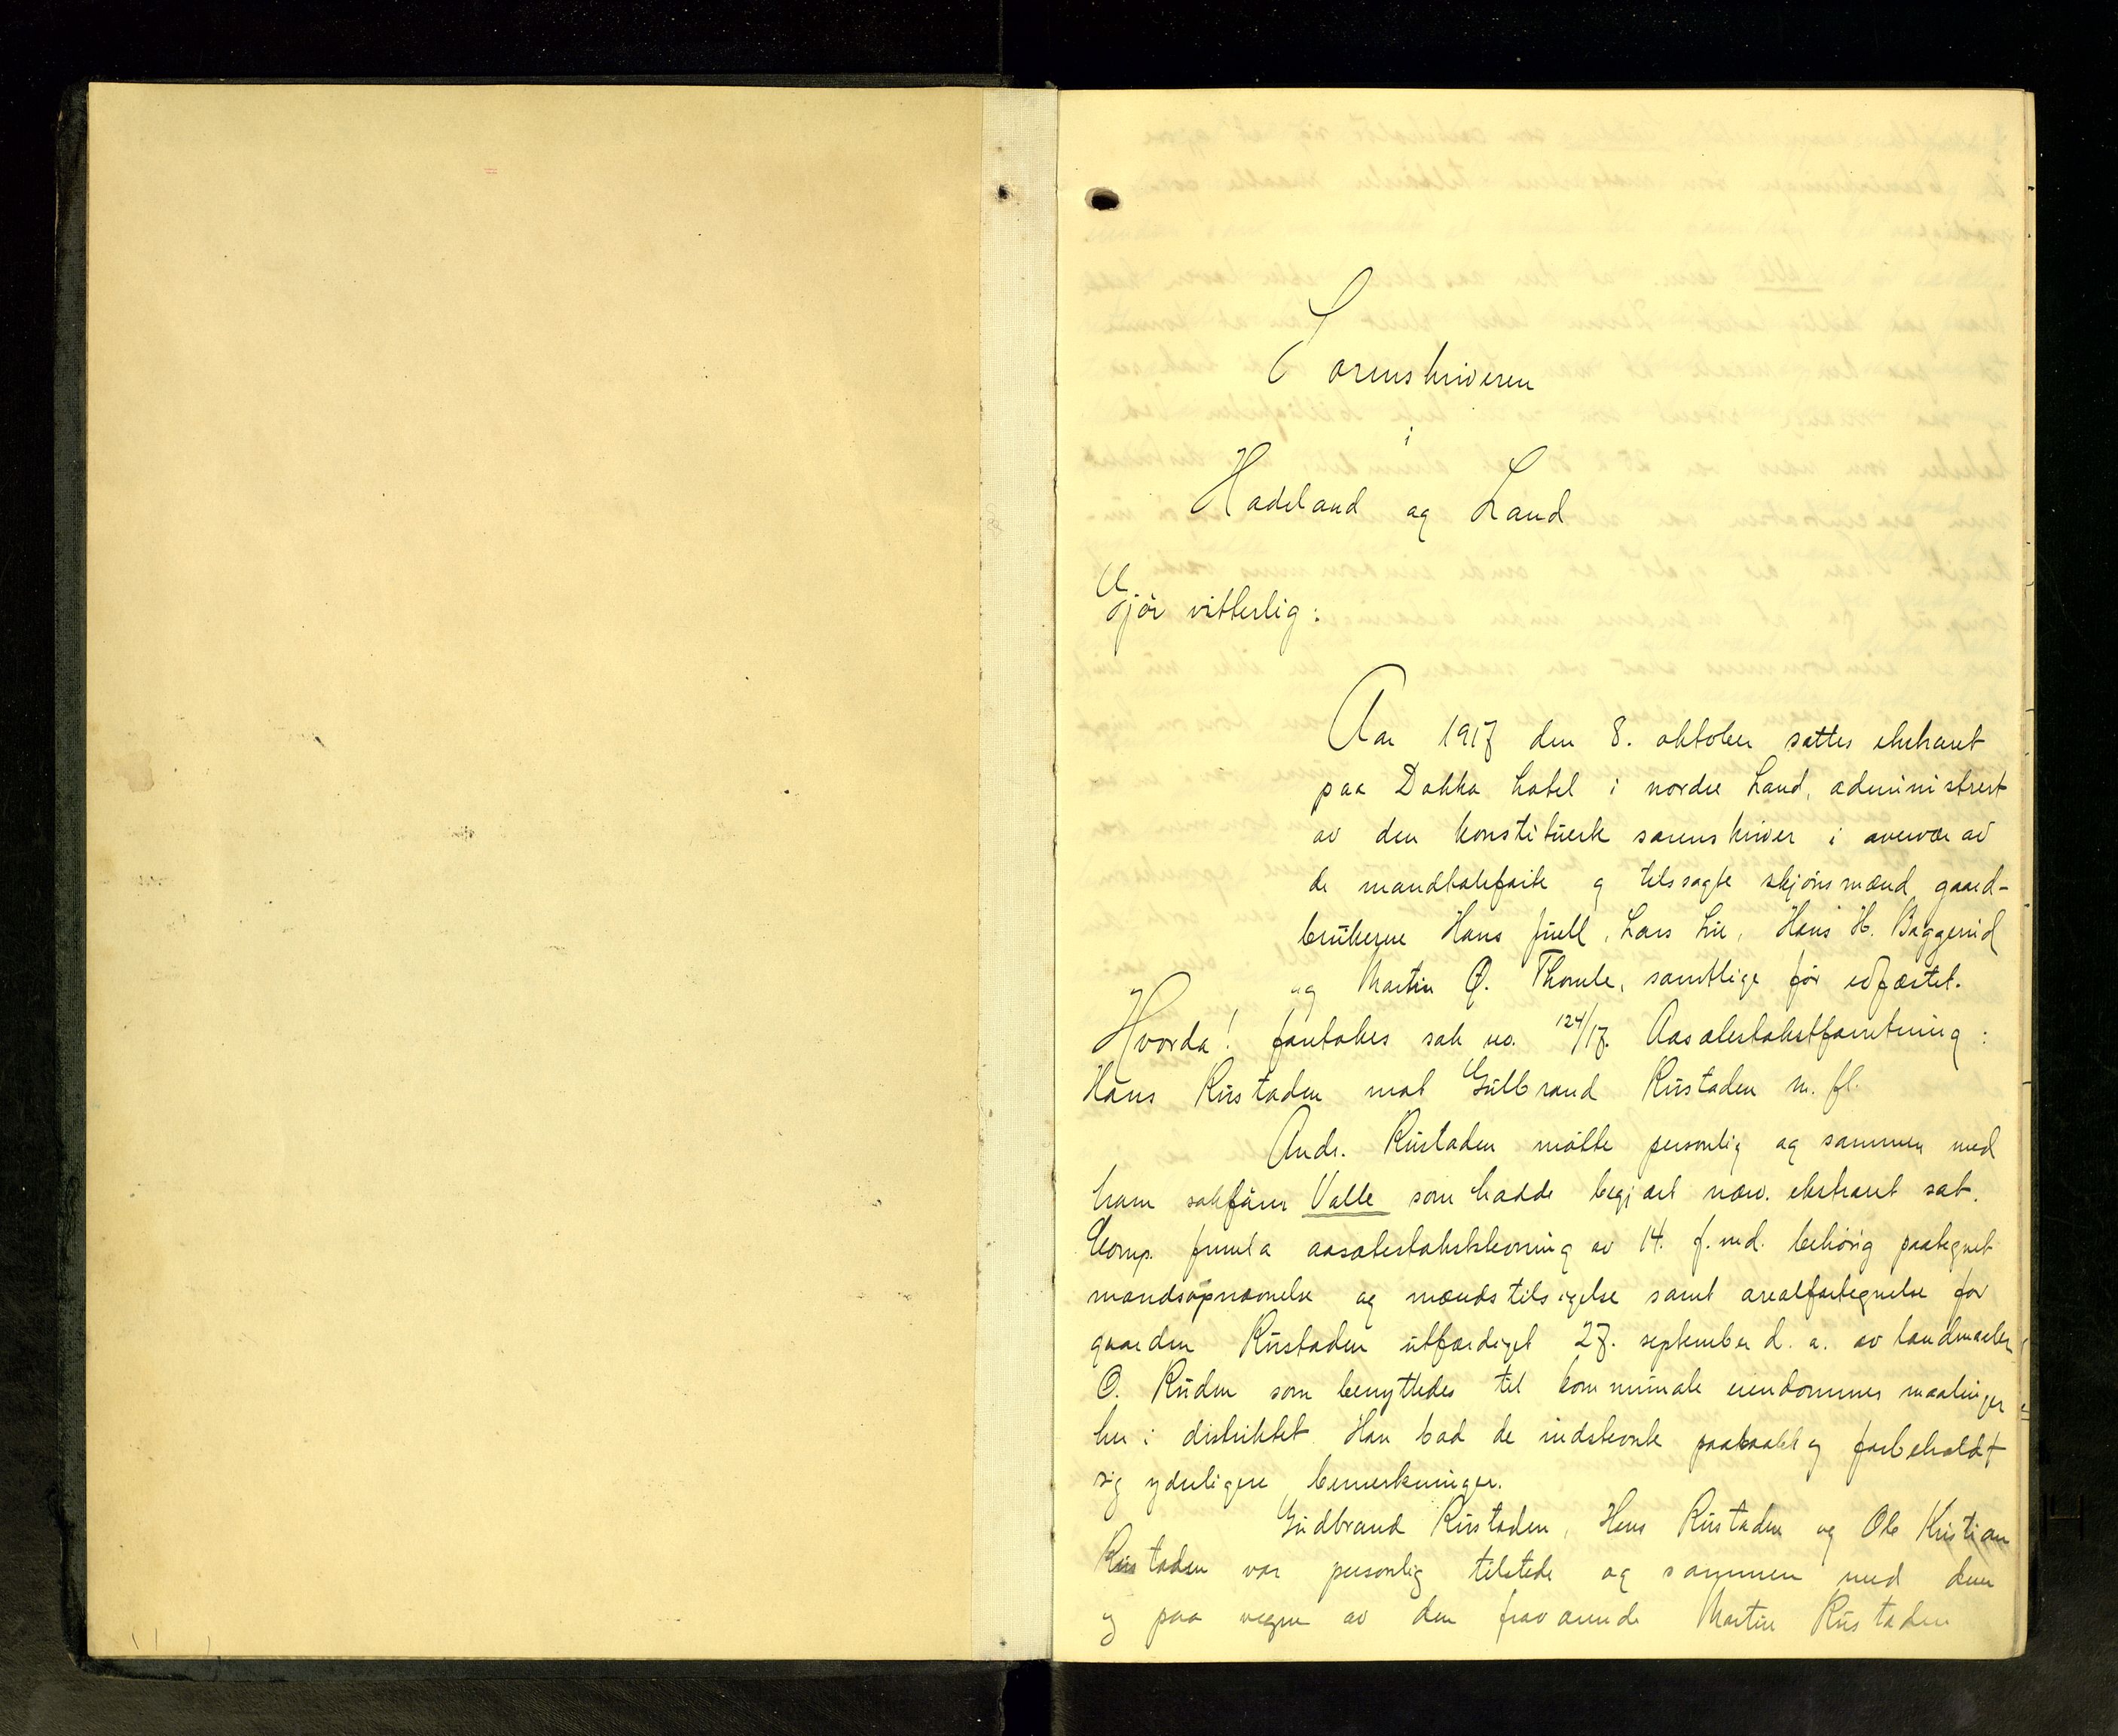 Sorenskriveren
i
Hadeland og Land
Gjör vitterlig:
Aar 1917 den 8. oktober sattes ekstraret
paa Dokka hotel i nordre Land, administrert
av den konstituerte sorenskriver i overvær av
de mandtalsførte og tilsagte skjønsmænd, gaard-
brukerne Hans Juell, Lars Lie, Hans H. Baggerud
og Martin O. Thomle, samtlige før edfæstet.
Hvorda! foretokes sak no. 124/17. Aasætestakstforretning:
Hans Rustaden mot Gulbrand Rustaden m. fl.
Andr. Rustaden mötte personlig og sammen med
ham sakfører Valle som hadde begjært nærv. ekstraret sat.
Comp. fremla aasætestakststevning av 14. f. md. behörig paategnet
mandsopnævnelse og mændstilsigelse samt arealfortegnelse for
gaarden Rustaden utfærdiget 27. september d. a. av landmaaler
O. Ruden som benyttedes til kommunale eiendommes maalinger
her i distriktet. Han bad de indstevnte paaraabt og forbeholdt
sig yderligere bemerkninger.
Gudbrand Rustaden, Hans Rustaden og Ole Kristian
Rustaden var personlig tilstede og sammen med dem
og paa vegne av den fraværende Martin Rustaden